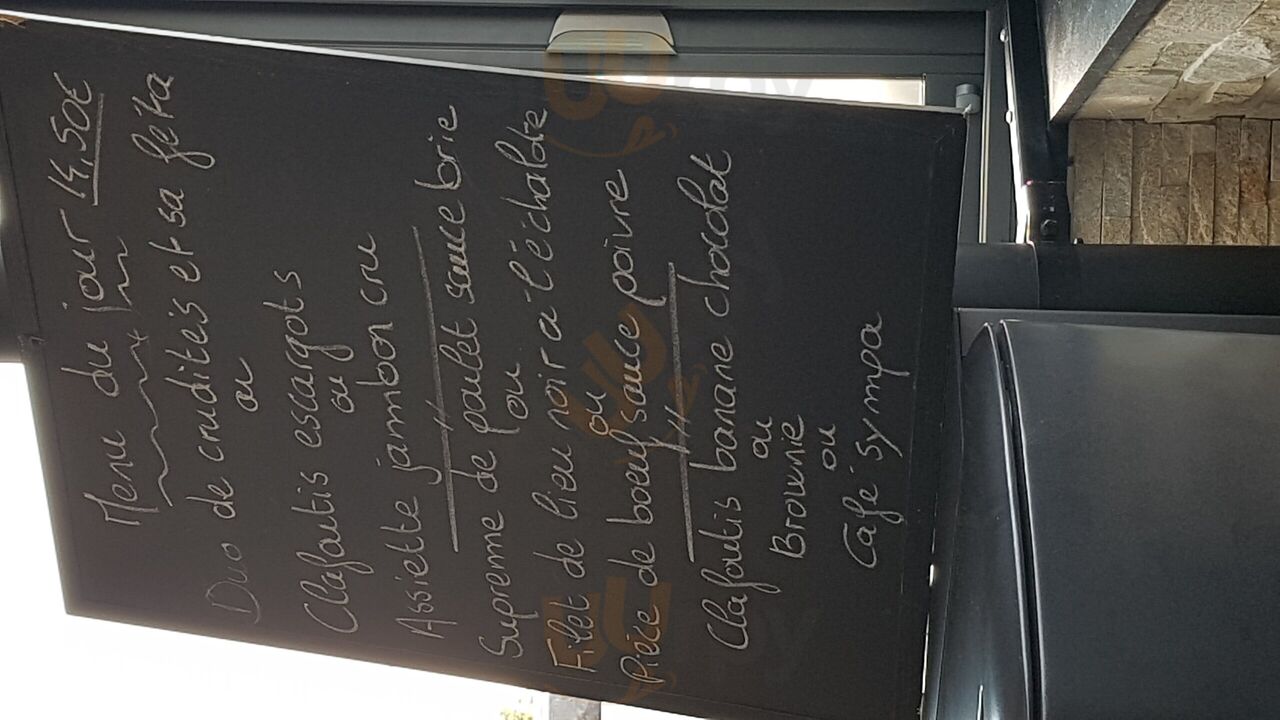 Menu du jour 14,50€
Duo de crudités et sa féta
ou
Clafoutis escargots
ou
Assiette jambon cru
//
Supreme de poulet sauce brie
ou
Filet de lieu noir à l'échalote
ou
Pièce de boeuf sauce poivre
//
Clafoutis banane chocolat
ou
Brownie
ou
Café sympa